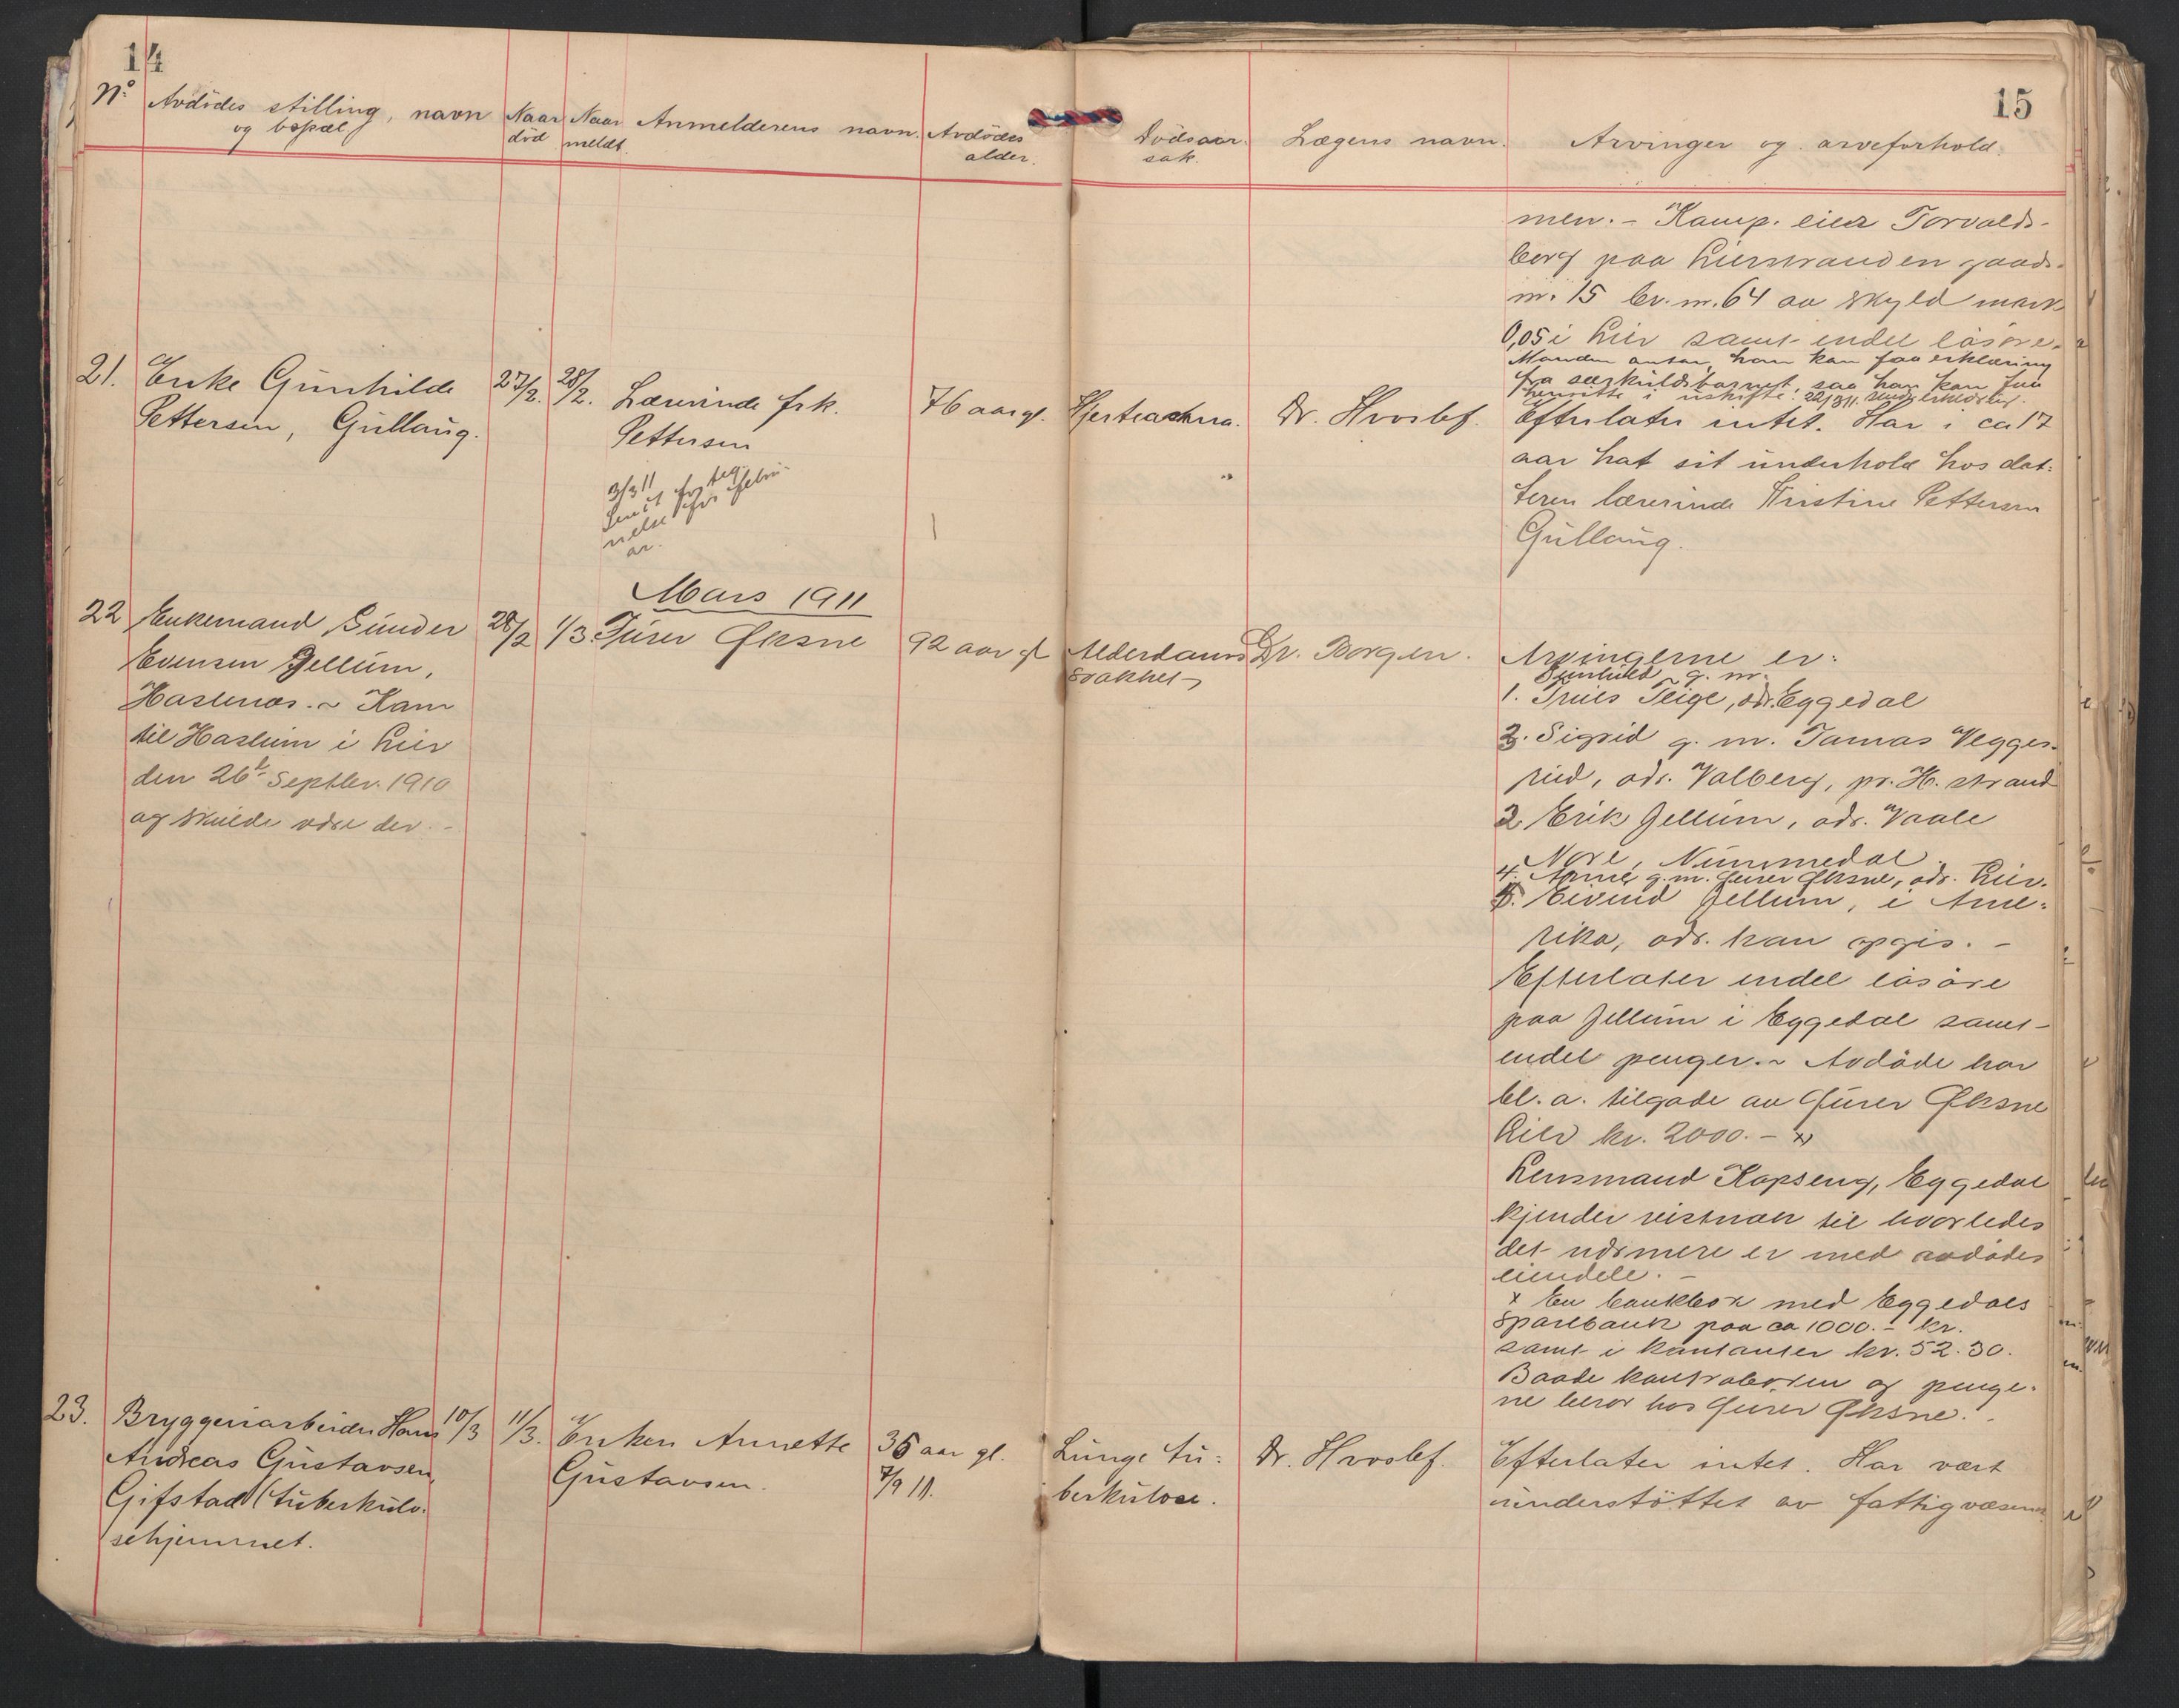 14
15
No Avdödes stilling, navn og bopæl
Naar död
Naar meldt.
Anmelderens navn.
Avdödes alder.
Dödsaarsak.
Lægens navn.
Arvinger og arveforhold.
men. - Kamp. eier Torvalds-
berg paa Lierstranden gaards-
nr. 15 br.nr. 64 av skyld mark
0,05 i Lier samt endel lösöre.
Manden antar, han kan faa erklæring
fra særkuldsbarnet, saa han kan faa
hensitte i uskifte. 22/3 11.
21. Enke Gunhilde
Pettersen, Gullaug.
27/2.
28/2.
Lærerinde frk.
Pettersen
3/3 11
76 aar gl.
Hjerteastma.
Dr. Hroslef.
Efterlater intet. Har i ca 17
aar hat sit underhold hos dat-
teren lærerinde Kristine Pettersen
Gullaug.
Mars 1911
22 Enkemand Gunder
Evensen Jellum,
Haslenes. ~ Kam
til Haslum i Lier
den 26de Septbr. 1910
og skulde være der. -
28/2
1/3.
Jurer Øksne
92 aar gl
Alderdoms
svakhet
Dr. Borgen.
Arvingerne er:
Gunhild g. m.
1. Truls Teige, adr. Eggedal
2. Sigrid g. m. Tomas Vegges-
rud, adr. Valberg, pr. H. strand
3. Erik Jellum, adr. Vaale
Nore, Nummedal.
4. Anne g.m. Jurer Øksne, adr. Lier.
5. Eivind Jellum, i Ame-
rika, adr. kan opgis. -
Efterlater endel lösöre
paa Jellum i Eggedal samt
endel penger. ~ Avdöde har
bl. a. tilgode av Jurer Øksne
Lier kr. 2000. - x)
Lensmand Kopseng, Eggedal
kjender vistnok til hvorledes
det nærmere er med avdödes
eiendele. -
x En bankbok med Eggedals
Sparebank paa ca 1000. - kr.
samt i kontanter kr. 52.30.
Baade kontraboken og penge-
ne beror hos Jurer Øksne.
23. Bryggeriarbeider Hans
Andreas Gustavsen,
Gifstad (tuberkulo-
sehjemmet.
10/3
11/3.
Enken Annette
Gustavsen.
36 aar gl.
7/9 11.
Lunge tu-
berkulose.
Dr. Hroslef.
Efterlater intet. Har vært
understöttet av fattigvæsenet